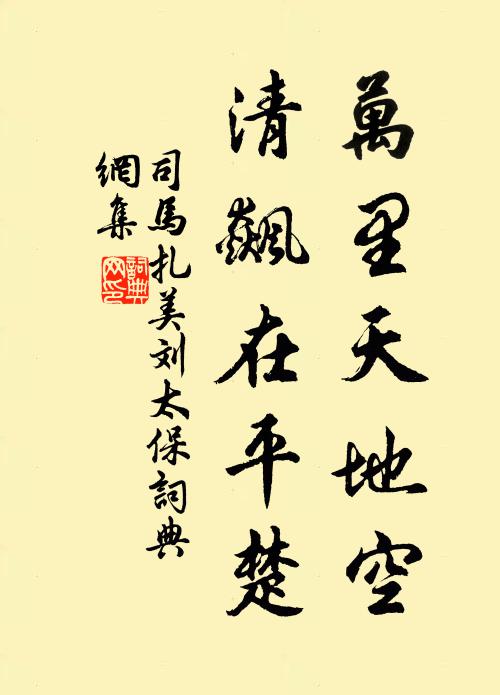 萬里天地空
清飆在平楚
司馬扎美刘太保詞典
網集
詞典網印